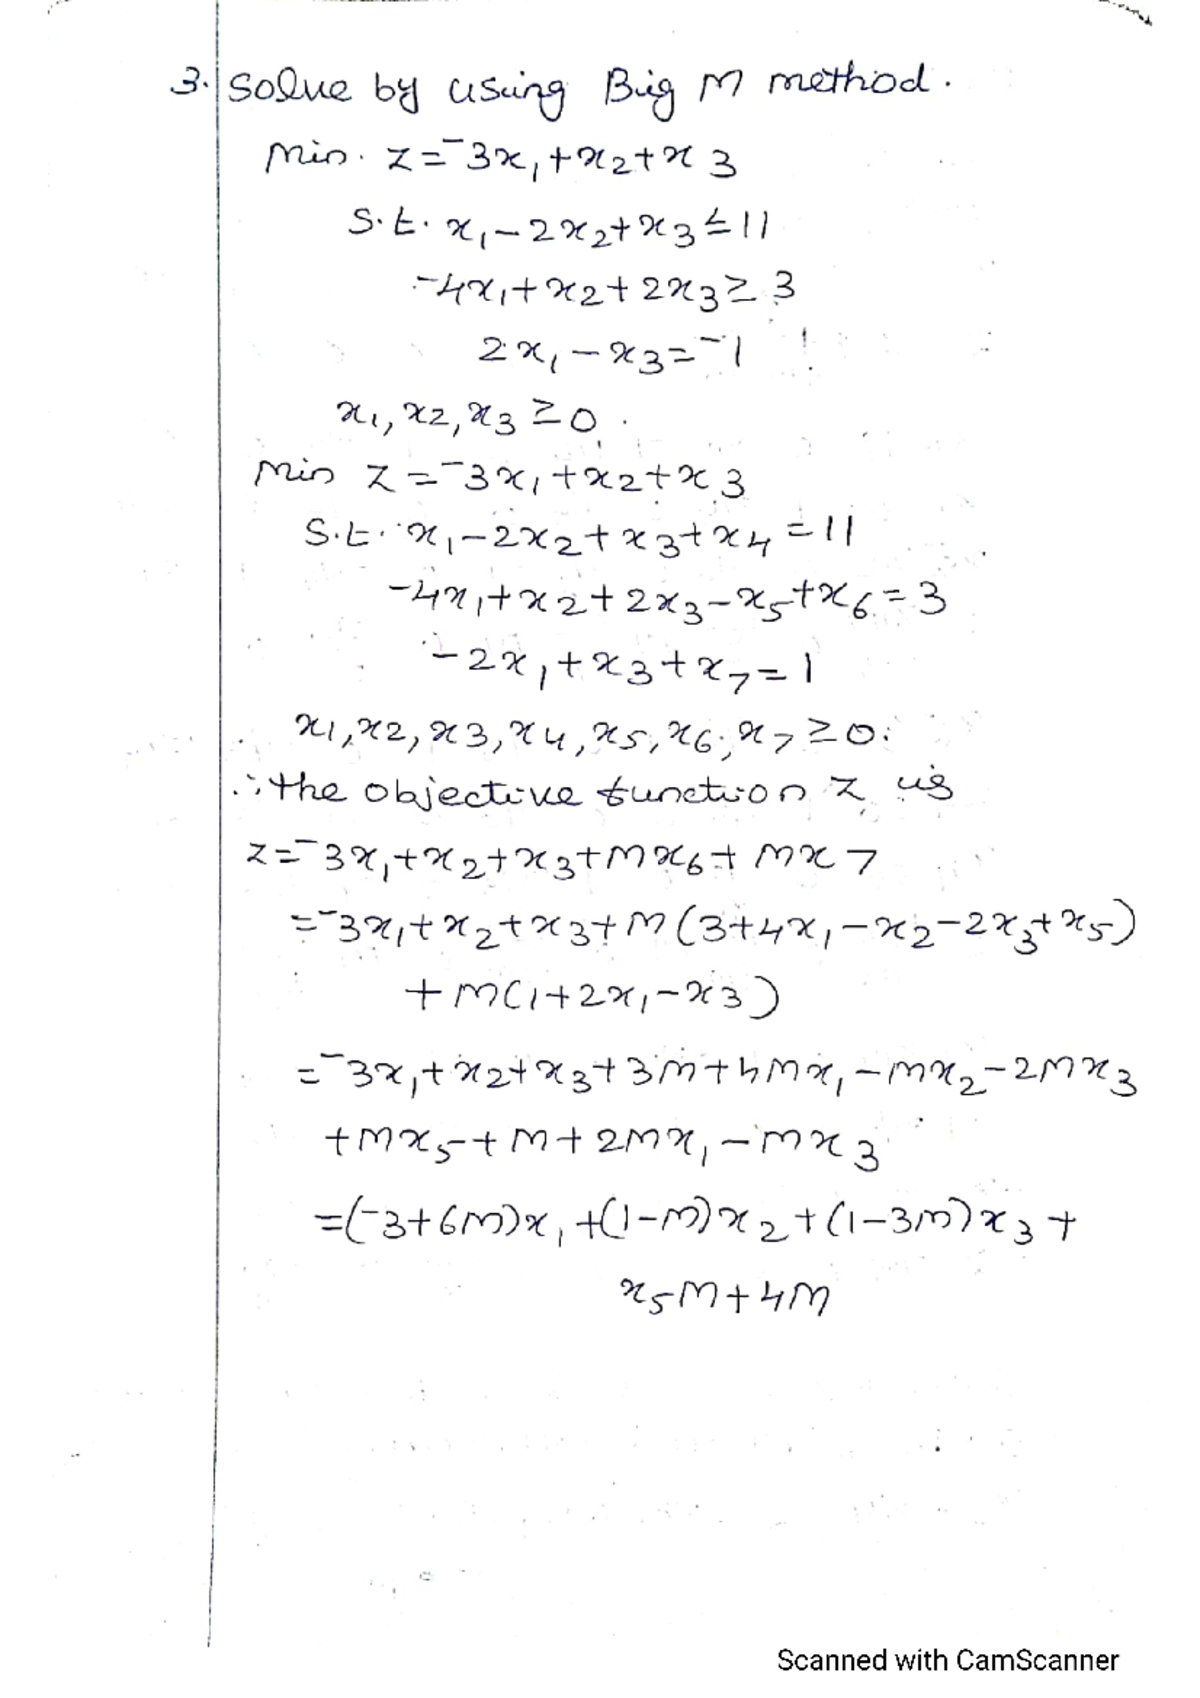 3. Solve by using Big M method.
Min. z = -3x₁ + x₂ + x3
S.t. x₁ - 2x₂ + x₃ ≤ 11
-4x₁ + x₂ + 2x₃ ≥ 3
2x₁ - x₃ = -1
x₁, x₂, x₃ ≥ 0.
Min z = -3x₁ + x₂ + x3
S.t. x₁ - 2x₂ + x₃ + x₄ = 11
-4x₁ + x₂ + 2x₃ - x₅ + x₆ = 3
-2x₁ + x₃ + x₇ = 1
x₁, x₂, x₃, x₄, x₅, x₆, x₇ ≥ 0.
∴ the objective function z is
z = -3x₁ + x₂ + x₃ + Mx₆ + Mx7
= -3x₁ + x₂ + x₃ + M(3 + 4x₁ - x₂ - 2x₃ + x₅)
+ M(1 + 2x₁ - x₃)
= -3x₁ + x₂ + x₃ + 3M + 4Mx₁ - Mx₂ - 2Mx₃
+ Mx₅ + M + 2Mx₁ - Mx₃
= (-3 + 6M)x₁ + (1 - M)x₂ + (1 - 3M)x₃ +
x₅M + 4M
Scanned with CamScanner